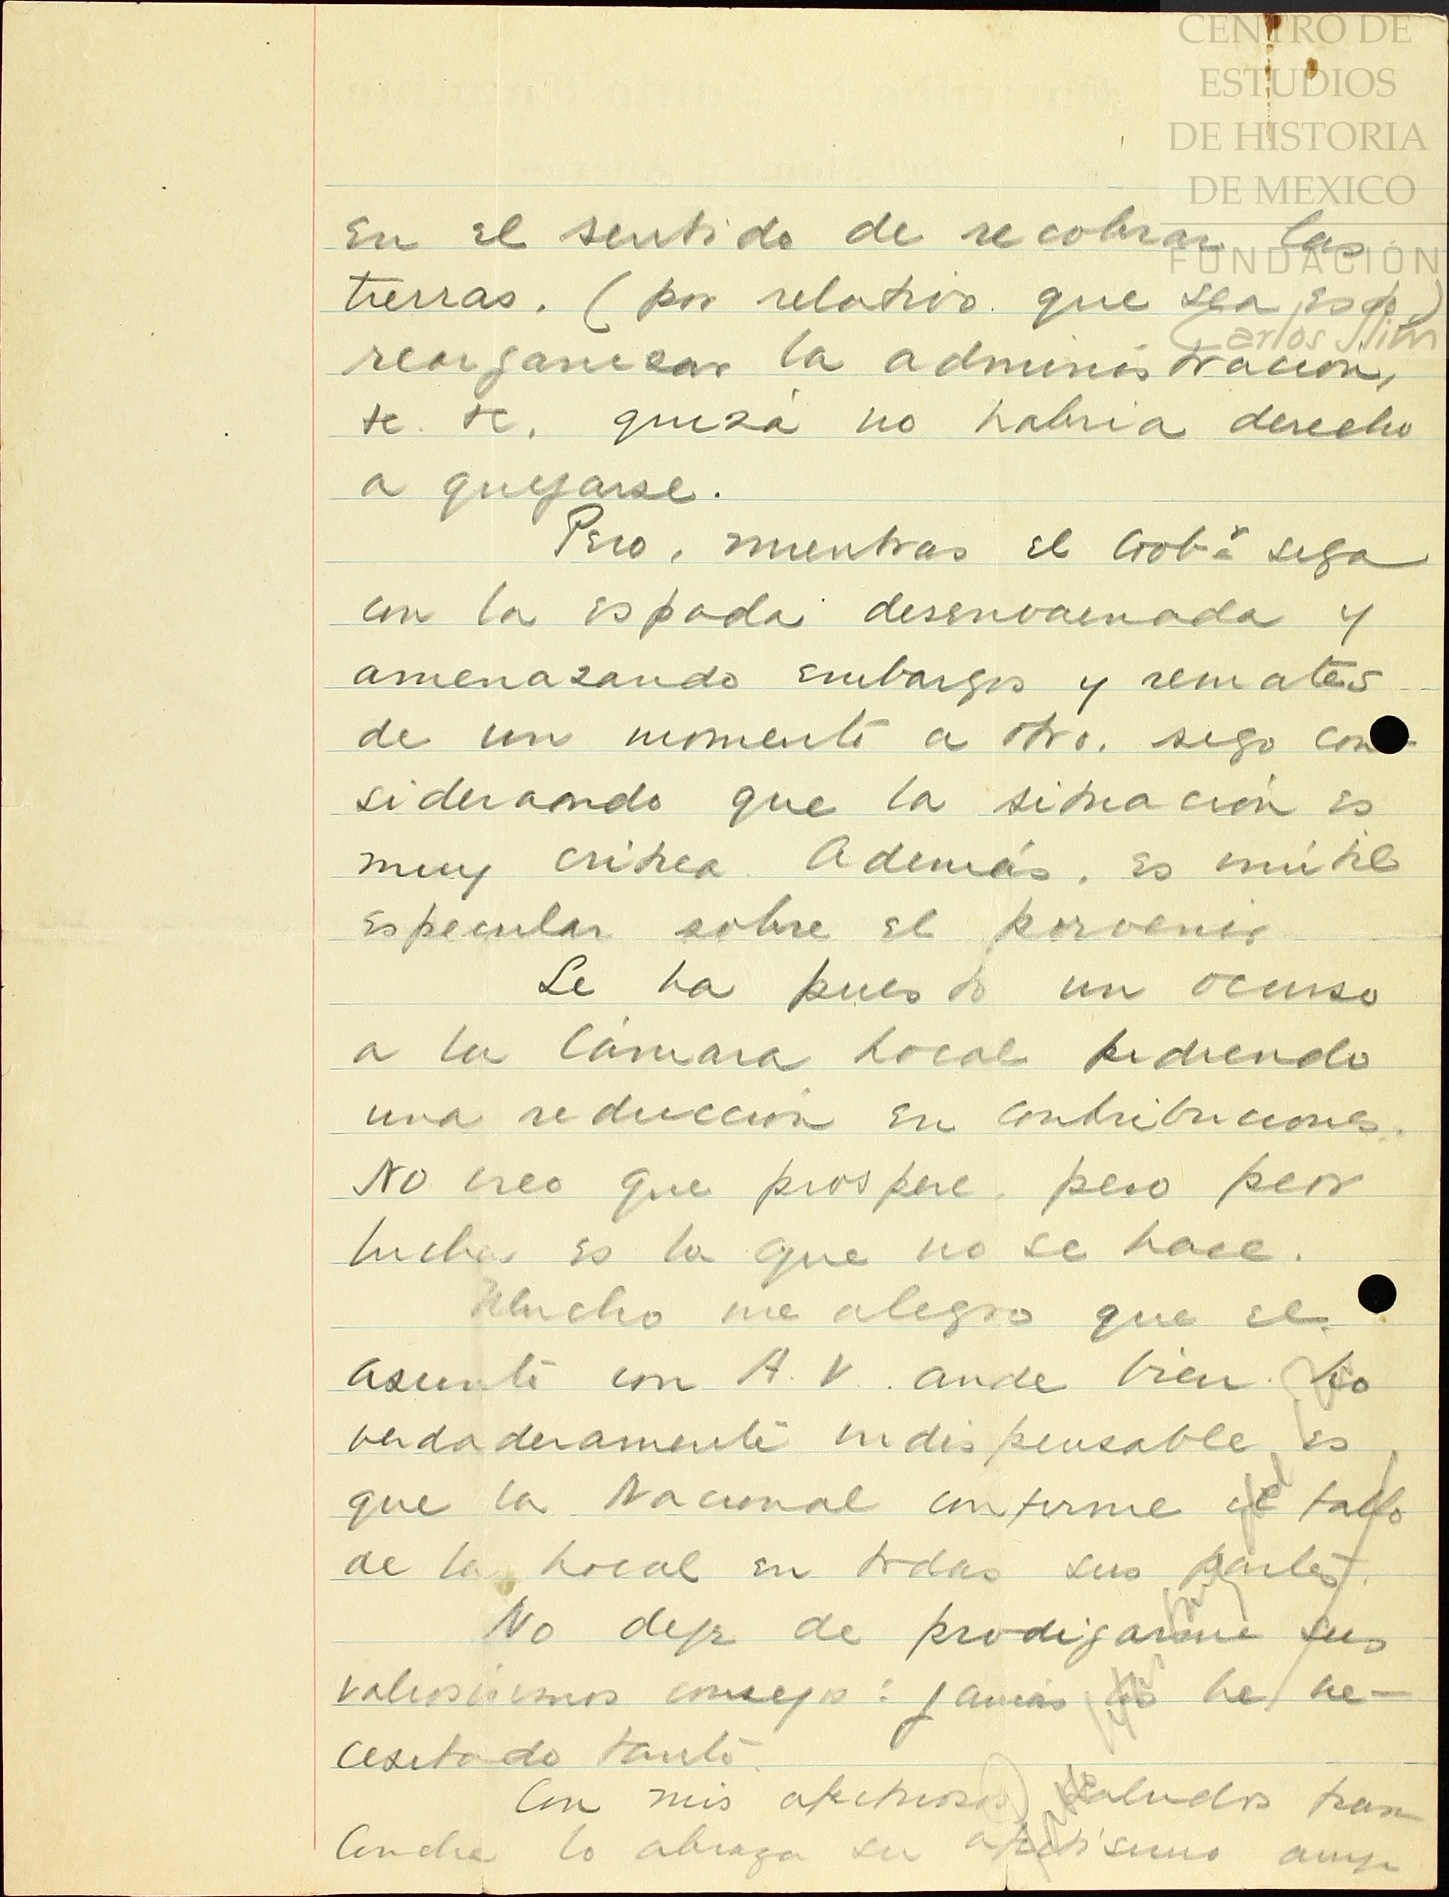 CENTRO DE
ESTUDIOS
DE HISTORIA
DE MEXICO
FUNDACIÓN
Carlos Slim
en el sentido de recobrar las
tierras. (por relativo que sea esto)
reorganizar la administración,
etc. etc. quizá no habria derecho
a quejarse.
Pero, mientras el Gob.º siga
con la espada desenvainada y
amenazando embargos y remates
de un momento a otro. sigo con-
siderando que la situación es
muy critica. Además, es inútil
especular sobre el porvenir
Se ha puesto un ocurso
a la Cámara Local pidiendo
una reducción en contribuciones.
No creo que prospere. pero peor
lucha es la que no se hace.
Mucho me alegro que el
asunto con A. V. ande bien. Lo
verdaderamente indispensable es
que la Nacional confirme el fallo
de la Local en todas sus partes.
No deje de prodigarme sus
valiosísimos consejos: jamás los he ne-
cesitado tanto.
Con mis afectuosos saludos para
Concha lo abraza su afectísimo amigo